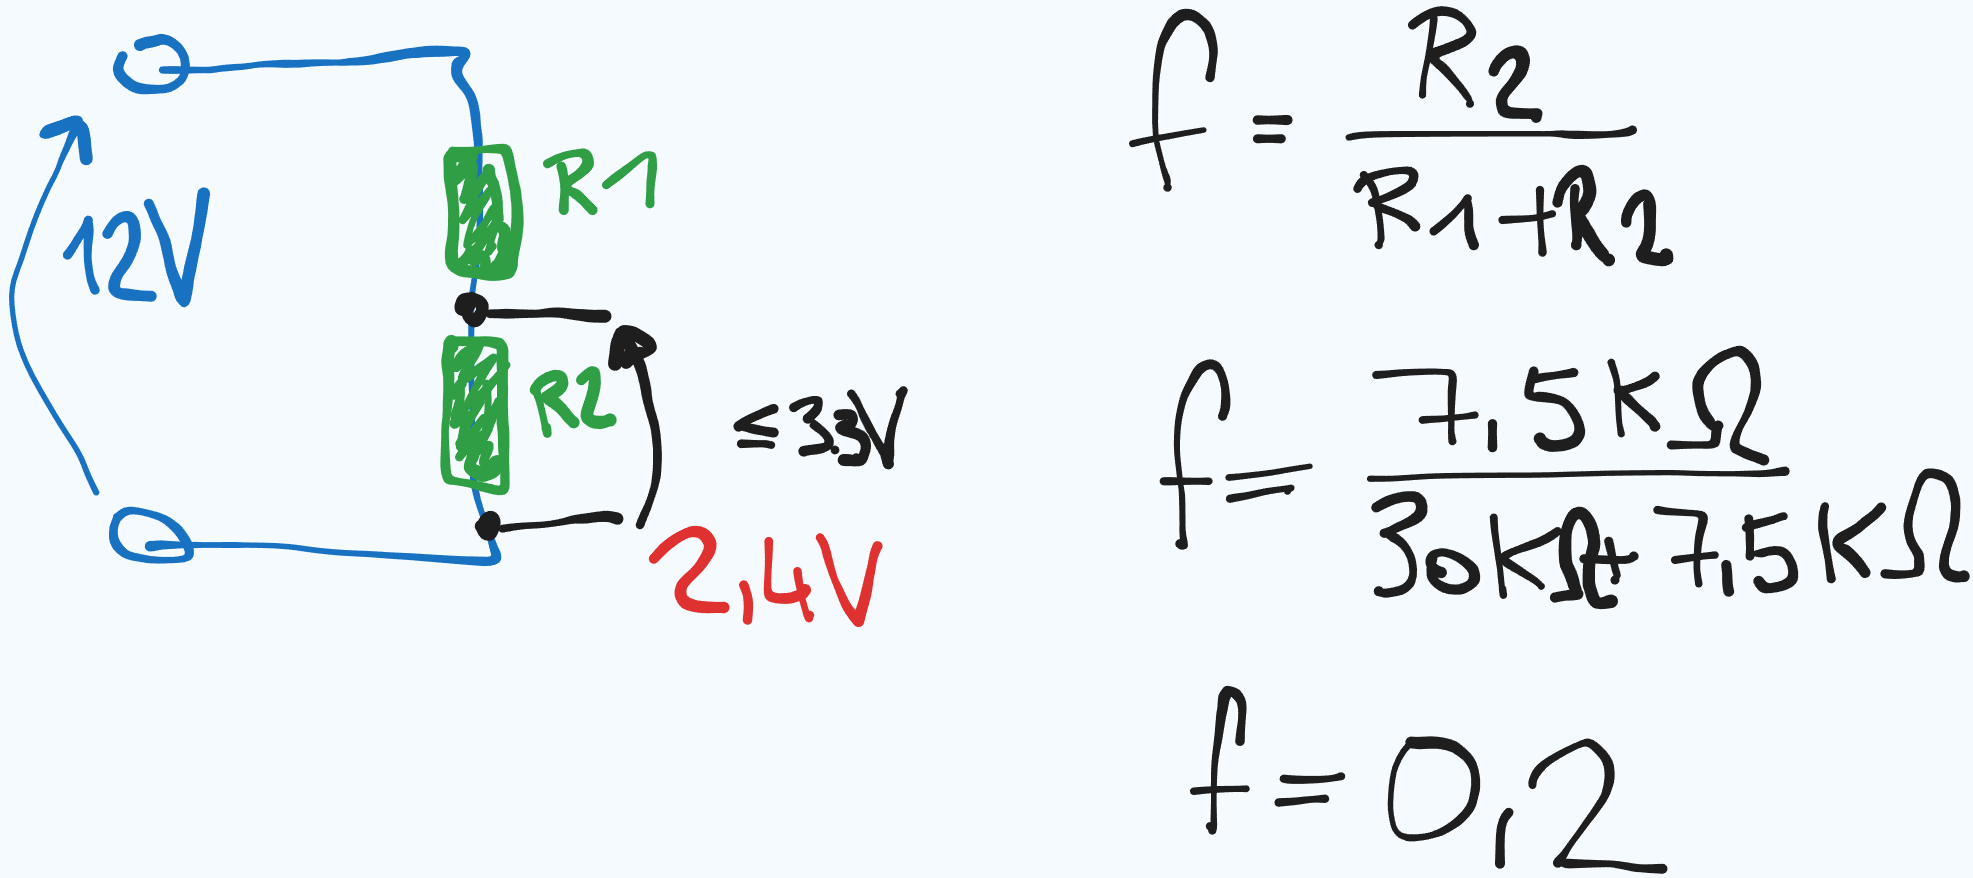 12V
R1
R2
≤3.3V
2,4V
f = R2
R1+R2
f = 7,5KΩ
30KΩ+7,5KΩ
f = 0,2